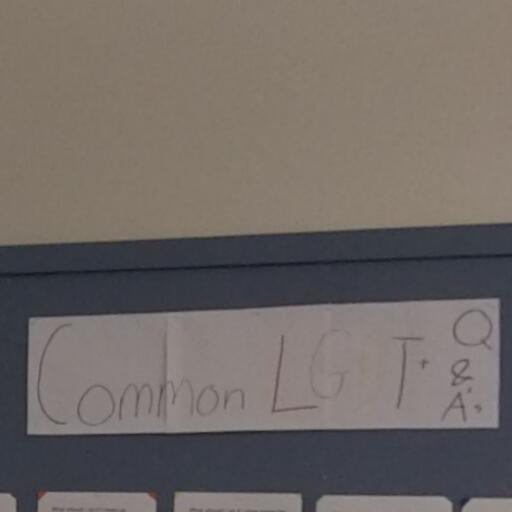 Common LG T+ Q & A's